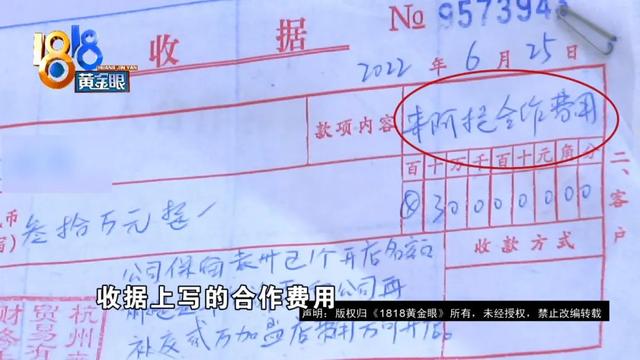 1818
黄金眼
收 据
№ 957394
2022 年 6 月 25 日
款项内容
合作费用
百十万千百十元角分
⊗30000000
叁拾万元整
收款方式
二、客户
公司保留
1个开店名额
公司再
收据上写的合作费用
声明：版权归《1818黄金眼》所有，未经授权，禁止改编转载
补交贰万加盟店费用方可开店。
杭州
贸易有
财务